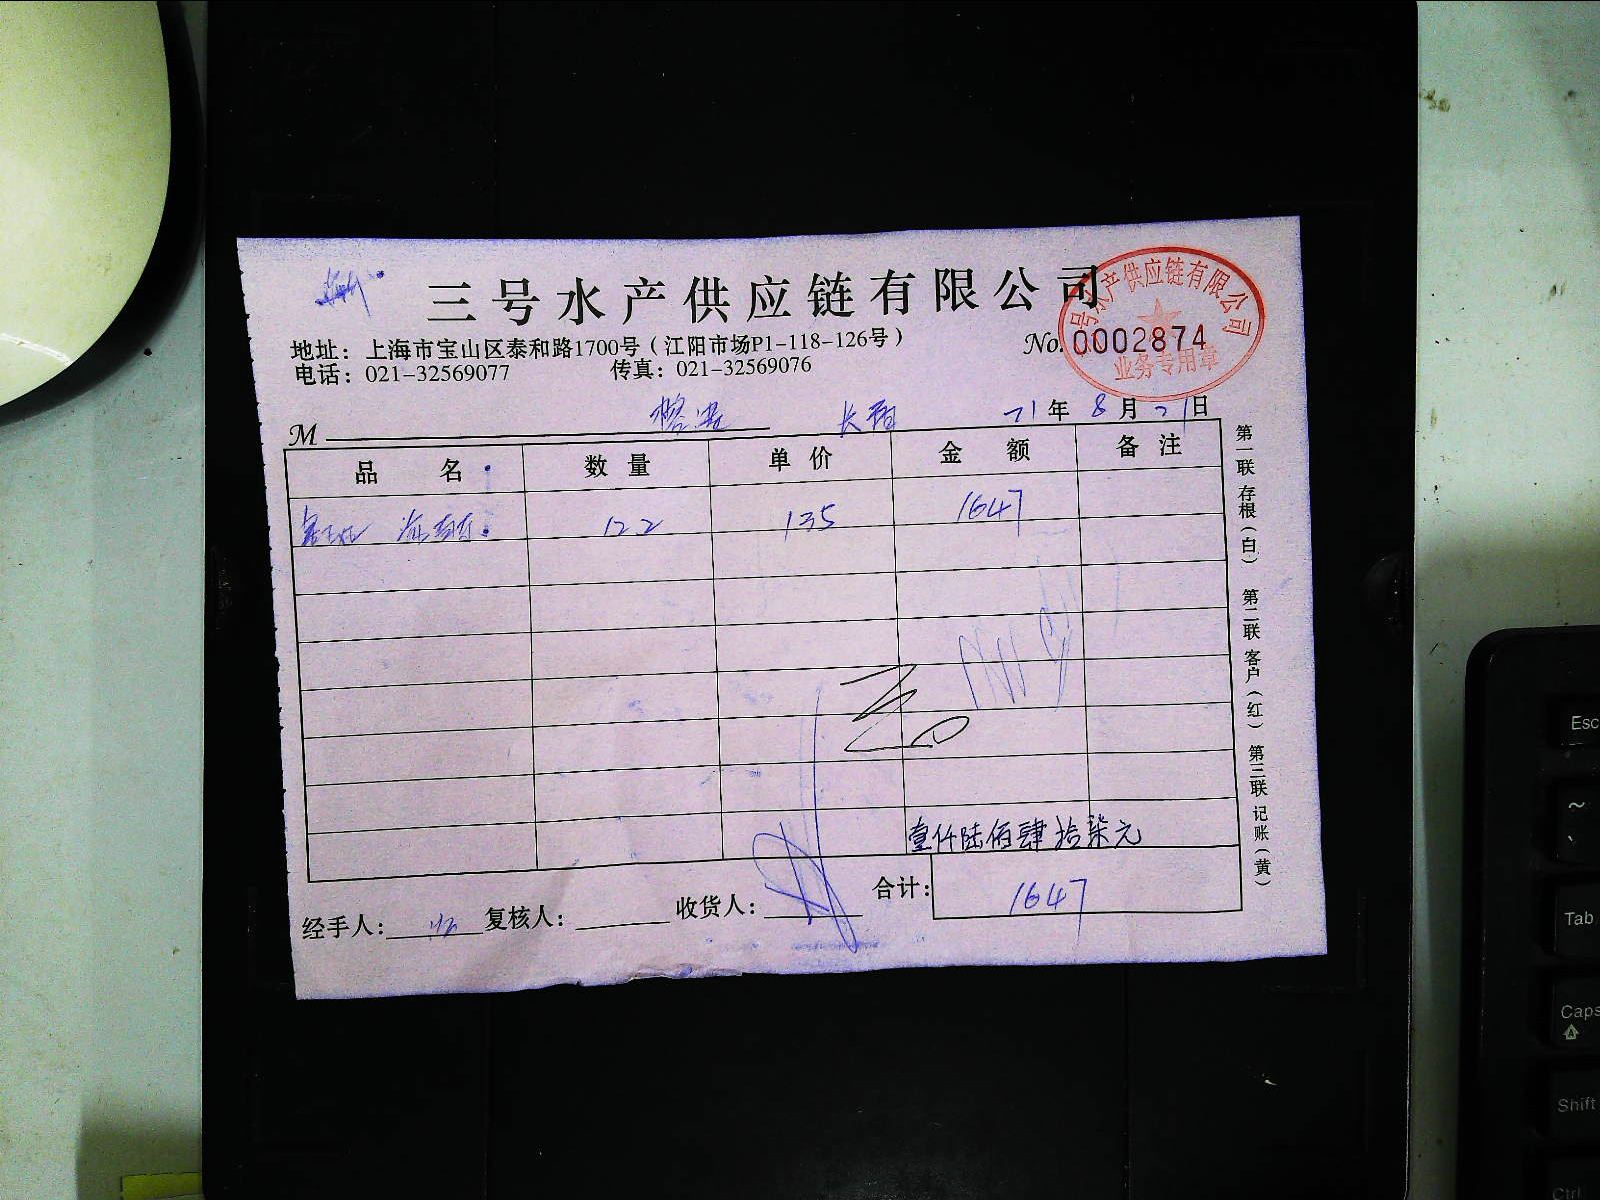 三号水产供应链有限公司
号水产供应链有限公司
业务专用章
地址：上海市宝山区泰和路1700号（江阳市场P1-118-126号）
No.0002874
电话：021-32569077 传真：021-32569076
M 长阳 21年8月21日
品名 数量 单价 金额 备注
122 135 1647
壹仟陆佰肆拾柒元
经手人： 复核人： 收货人： 合计：1647
第一联 存根（白） 第二联 客户（红） 第三联 记账（黄）
Esc
~
Tab
Caps
Shift
Ctrl